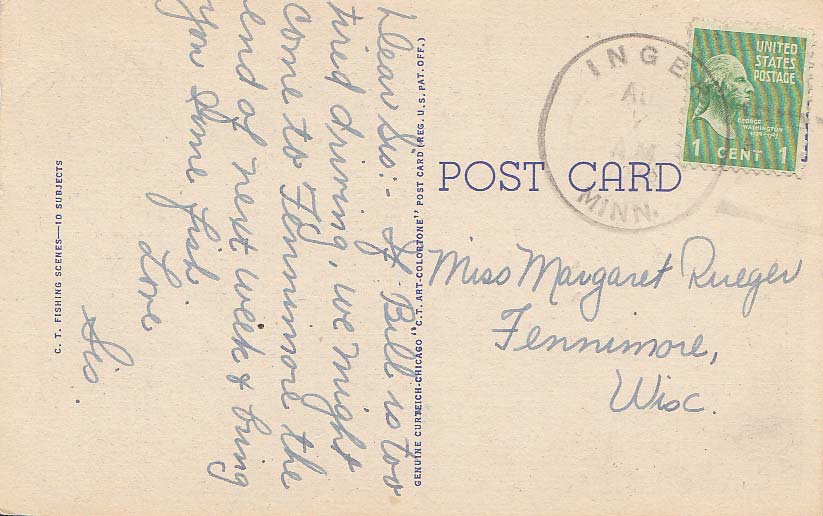 Dear Sis:- If Bill is too
tired driving, we might
come to Fennimore the
end of next week & bring
you some fish.
Love
Sis.
C. T. FISHING SCENES—10 SUBJECTS
GENUINE CURTEICH-CHICAGO "C. T. ART-COLORTONE" POST CARD (REG. U. S. PAT. OFF.)
POST CARD
INGE
AU
7
AM
MINN.
UNITED
STATES
POSTAGE
GEORGE
WASHINGTON
1789-1797
1 CENT 1
Miss Margaret Rueger
Fennimore,
Wisc.